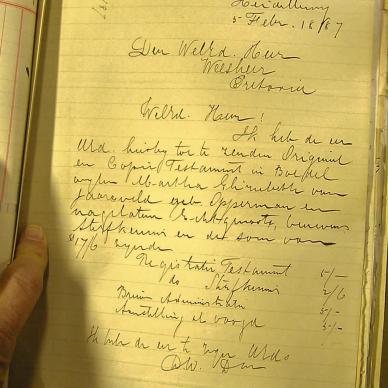 Heidelberg
5 Febr. 1887
Den Weled. Heer
Weesheer
Pretoria
Weled. Heer!
Ik heb de eer
Ued. hierby toe te zenden Origineel
en Copie Testament in Boedel
wylen Martha Elizabeth van
Jaarsveld geb. Opperman en
nagelaten Echtgenoot, bewys
Sterfkennis en de som van
17/6 zynde
Registratie Testament 5/-
do Sterfkennis 2/6
Administratie 5/-
Aanstelling als voogd 5/-
Ik heb de eer te zyn Ued.